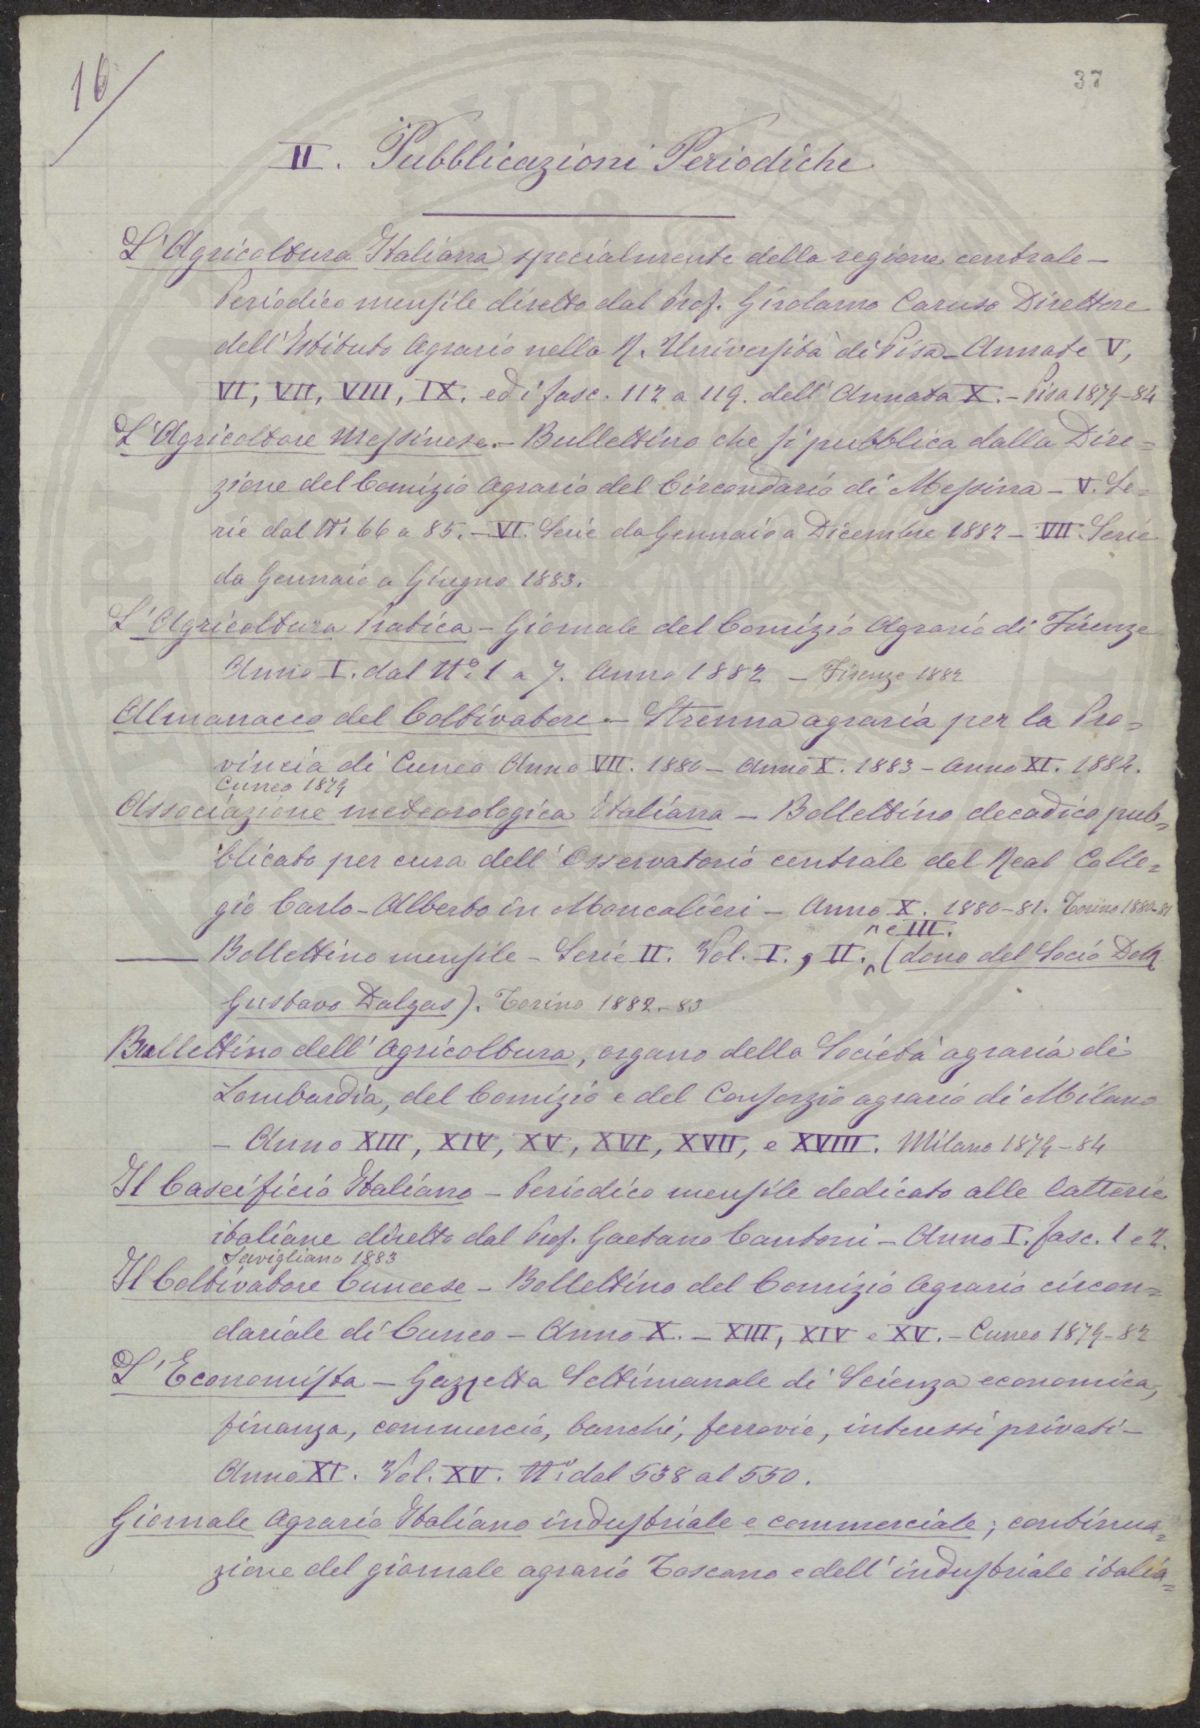 16
37
II. Pubblicazioni Periodiche
L'Agricoltura Italiana specialmente della regione centrale –
Periodico mensile diretto dal Prof. Girolamo Caruso Direttore
dell'Istituto Agrario nella R. Università di Pisa – Annate V,
VI, VII, VIII, IX. ed i fasc. 112 a 119. dell'Annata X. – Pisa 1879–84
L'Agricoltore Messinese. – Bullettino che si pubblica dalla Dire=
zione del Comizio Agrario del Circondario di Messina – V. Se=
rie dal Nº 66 a 85. – VI. Serie da Gennaio a Dicembre 1882 – VII. Serie
da Gennaio a Giugno 1883.
L'Agricoltura Pratica – Giornale del Comizio Agrario di Firenze
Anno I. dal Nº 1 a 7. Anno 1882 – Firenze 1882
Almanacco del Coltivatore – Strenna agraria per la Pro=
vincia di Cuneo Anno VII. 1880 – Anno X. 1883 – Anno XI. 1884.
Cuneo 1879
Associazione meteorologica italiana – Bollettino decadico pub=
blicato per cura dell'Osservatorio centrale del Real Colle=
gio Carlo-Alberto in Moncalieri – Anno X. 1880–81. Torino 1880–81
e III.
—— Bollettino mensile – Serie II. Vol. I., II. (dono del Socio Dott.
Gustavo Dalgas). Torino 1882–83
Bullettino dell'Agricoltura, organo della Società agraria di
Lombardia, del Comizio e del Consorzio agrario di Milano
– Anno XIII, XIV, XV, XVI, XVII, e XVIII. Milano 1879–84
Il Caseificio Italiano – Periodico mensile dedicato alle latterie
italiane diretto dal Prof. Gaetano Cantoni – Anno I. fasc. 1 e 2.
Savigliano 1883
Il Coltivatore Cuneese – Bollettino del Comizio Agrario circon=
dariale di Cuneo – Anno X. – XIII, XIV e XV. – Cuneo 1879–82
L'Economista – Gazzetta Settimanale di Scienza economica,
finanza, commercio, banchi, ferrovie, interessi privati –
Anno XI. Vol. XV. Nº dal 538 al 550.
Giornale Agrario Italiano industriale e commerciale; continua=
zione del giornale agrario Toscano e dell'industriale italia=